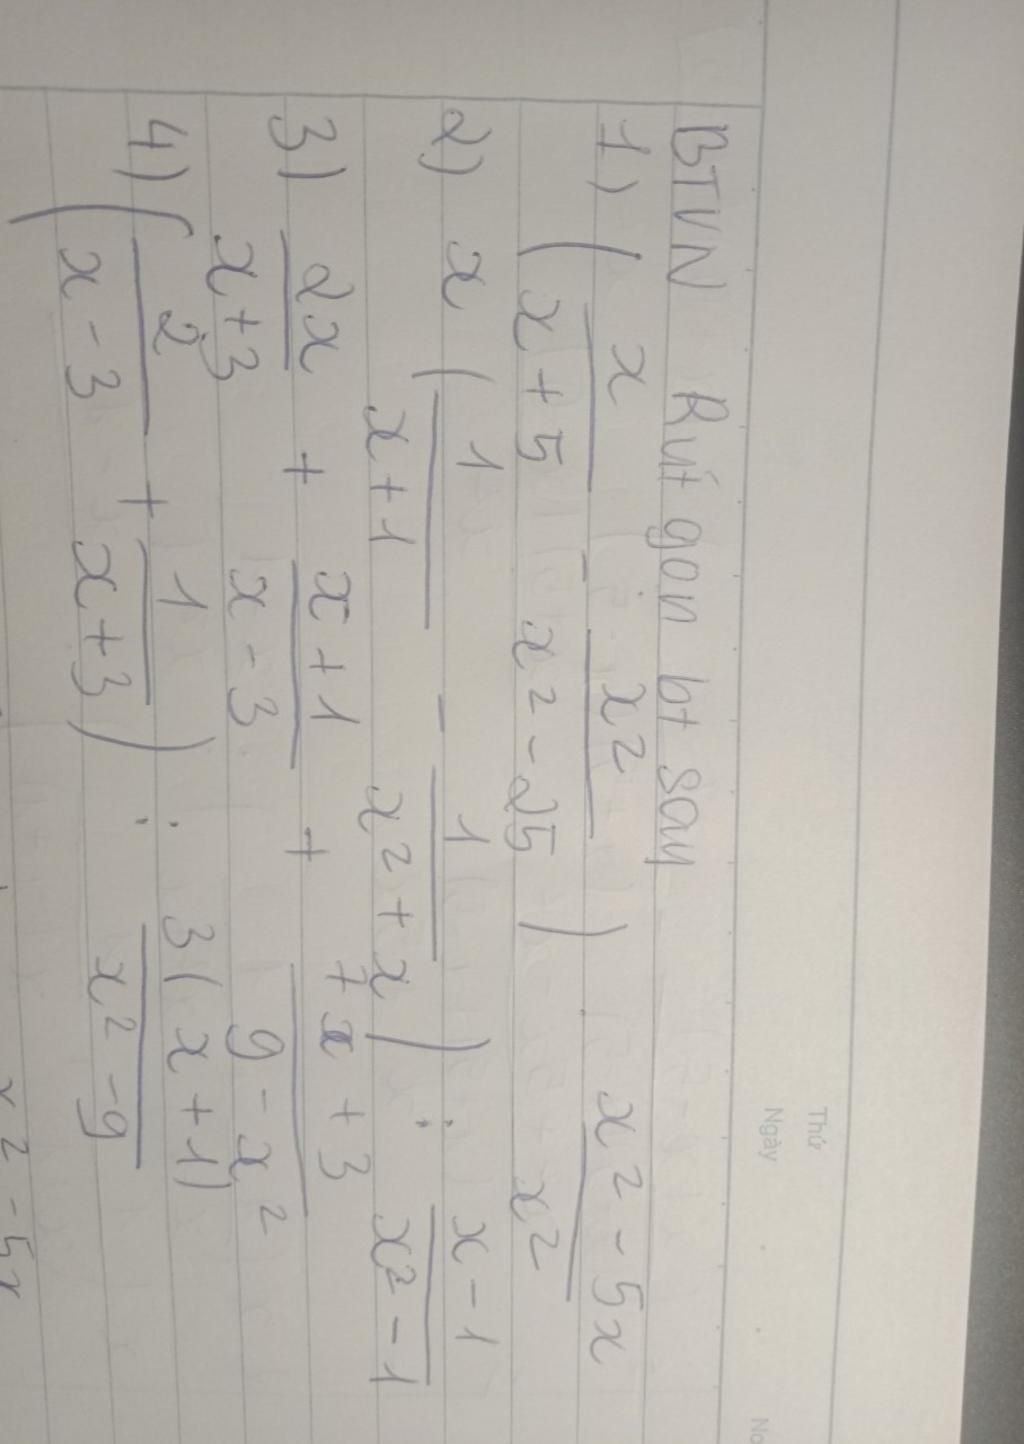 Thứ
Ngày No
BTVN Rút gọn bt sau
1) ( x / x + 5 - x² / x² - 25 ) . x² - 5x / x²
2) x ( 1 / x + 1 - 1 / x² + x ) : x - 1 / x² - 1
3) 2x / x + 3 + x + 1 / x - 3 + 7x + 3 / 9 - x²
4) ( 2 / x - 3 + 1 / x + 3 ) : 3(x + 1) / x² - 9
x² - 5x